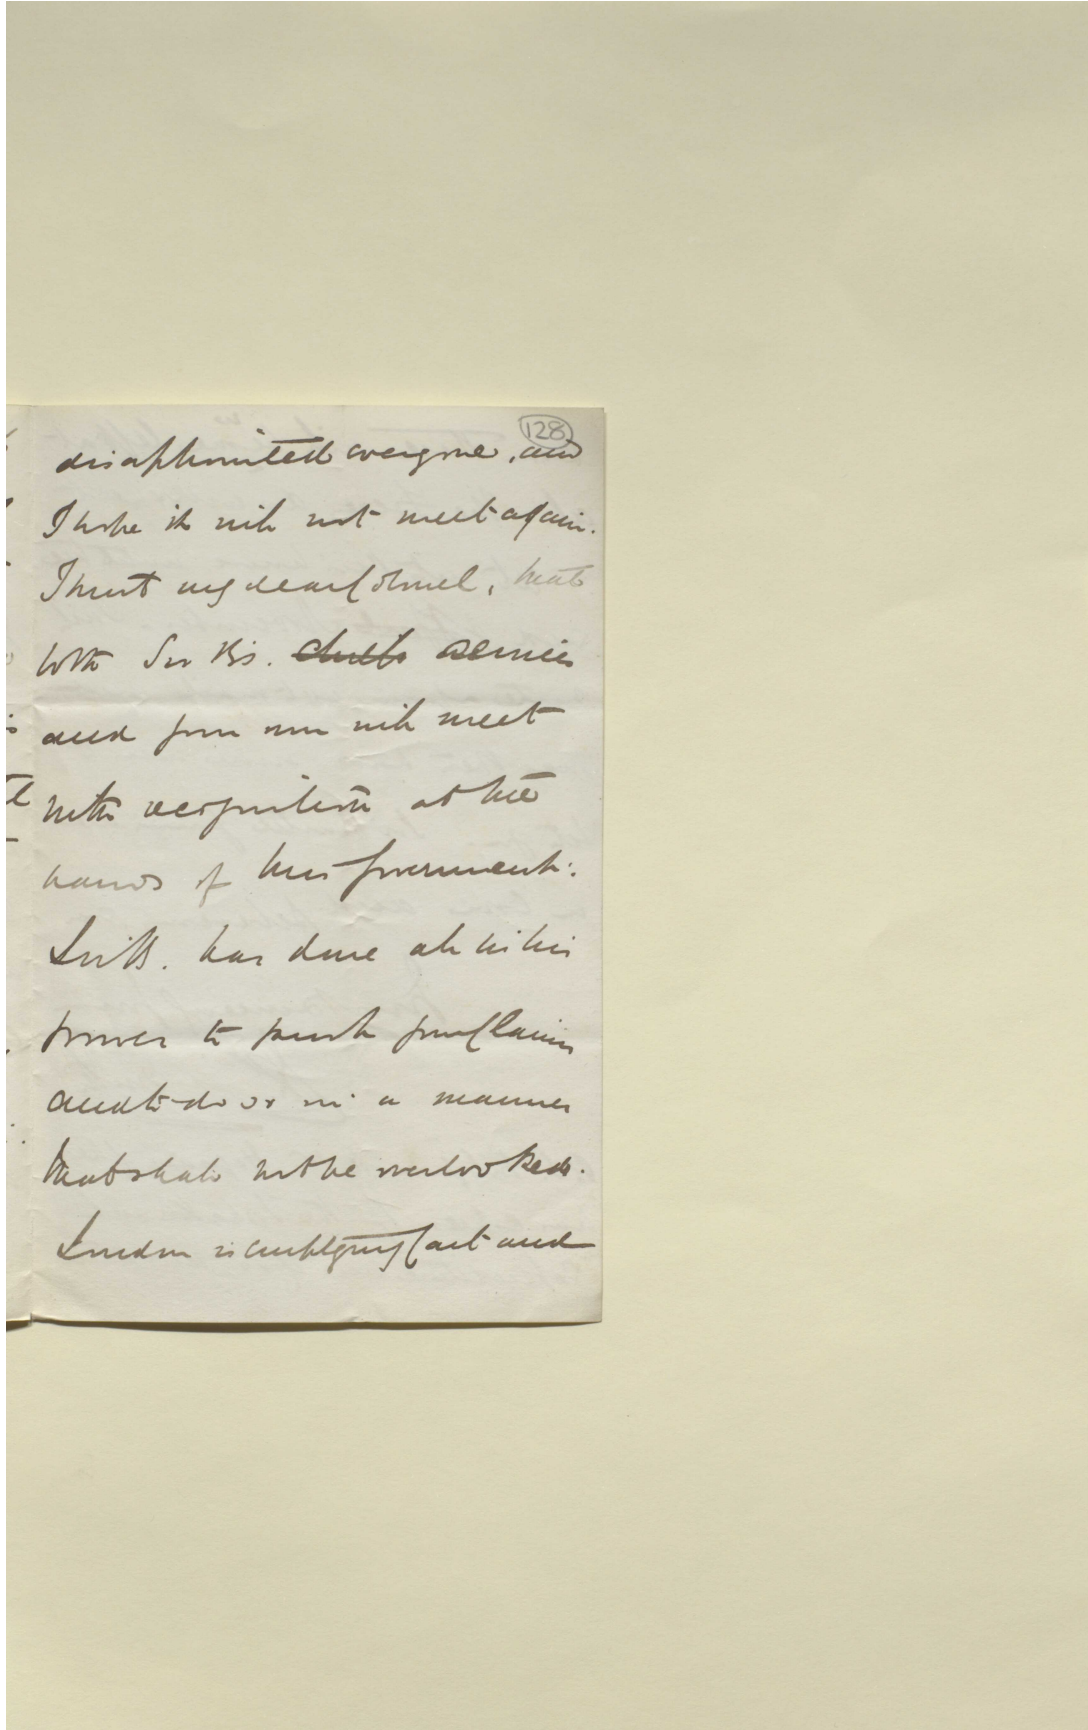 128
disappointed everyone, and
I hope it will not meet again.
I trust my dear Colonel, that
both Sir B's. services
and your own will meet
with recognition at the
hands of this Government:
Sir B. has done all in his
power to push your Claims
and to do so in a manner
that shall not be overlooked.
London is emptying fast and